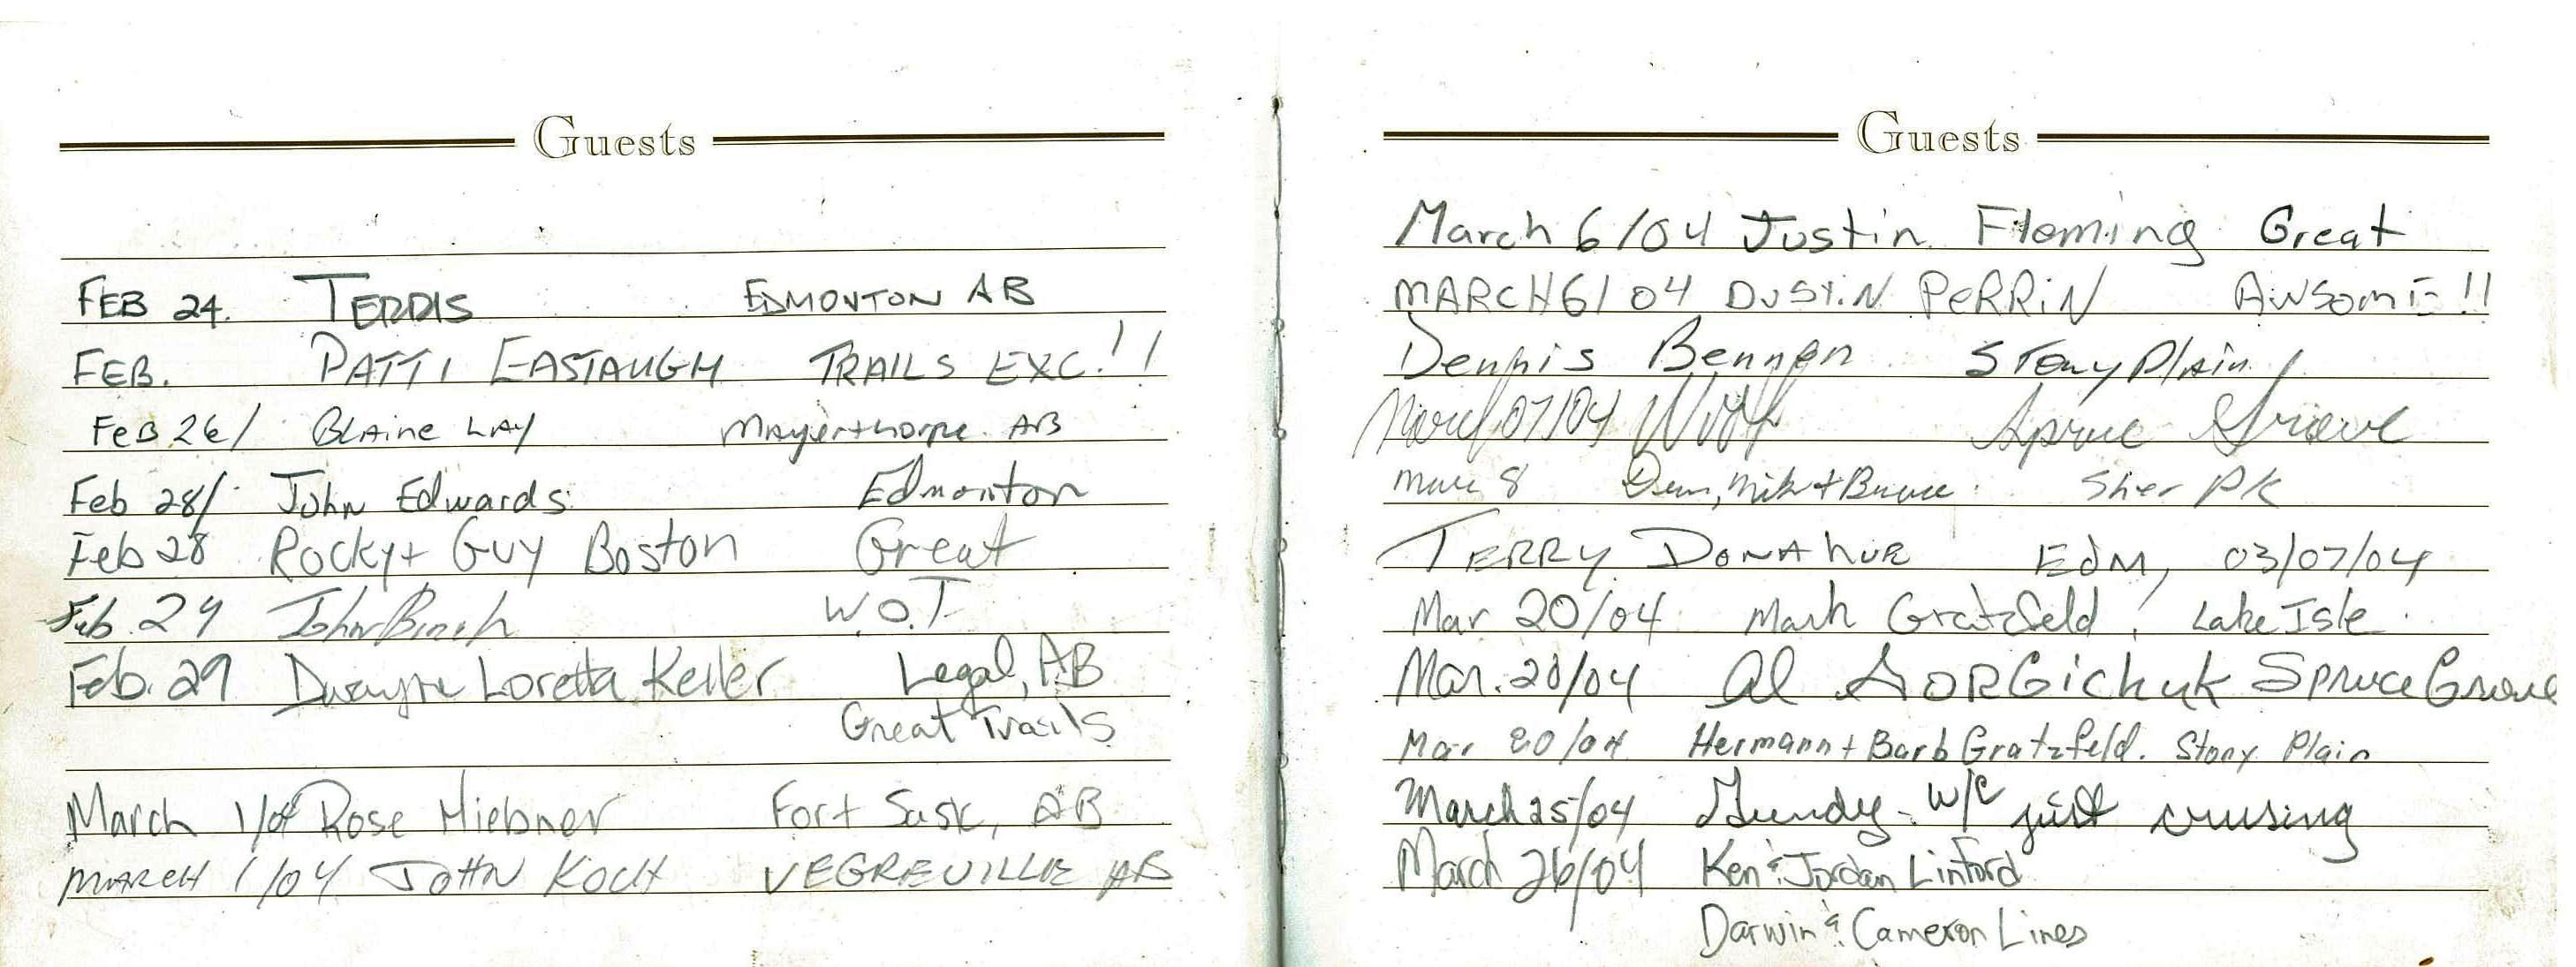 Guests
FEB 24. TERRIS EDMONTON AB
FEB. PATTI EASTAUGH TRAILS EXC.!!
FEB 26/ BLAINE LAY Mayerthorpe AB
Feb 28/ John Edwards Edmonton
Feb 28 Rocky + Guy Boston Great
Feb. 29 John W.O.T
Feb. 29 Dwayne Loretta Keller Legal, AB
Great Trails
March 1/04 Rose Hiebner Fort Sask, AB
MARCH 1/04 JOHN KOCH VEGREVILLE AB
Guests
March 6/04 Justin Fleming Great
MARCH 6/04 DUSTIN PERRIN AWSOME!!
Dennis Stony Plain
March 07/04 Spruce Grove
Mar 8 Mike + Bruce Sher PK
TERRY DONAHUE EDM, 03/07/04
Mar 20/04 Mark Gratzfeld, Lake Isle.
Mar. 20/04 Al Spruce Grove
Mar 20/04 Hermann + Barb Gratzfeld. Stony Plain
March 25/04 Grundy - W/C just crusing
March 26/04 Ken & Jordan Linford
Darwin & Cameron Lines